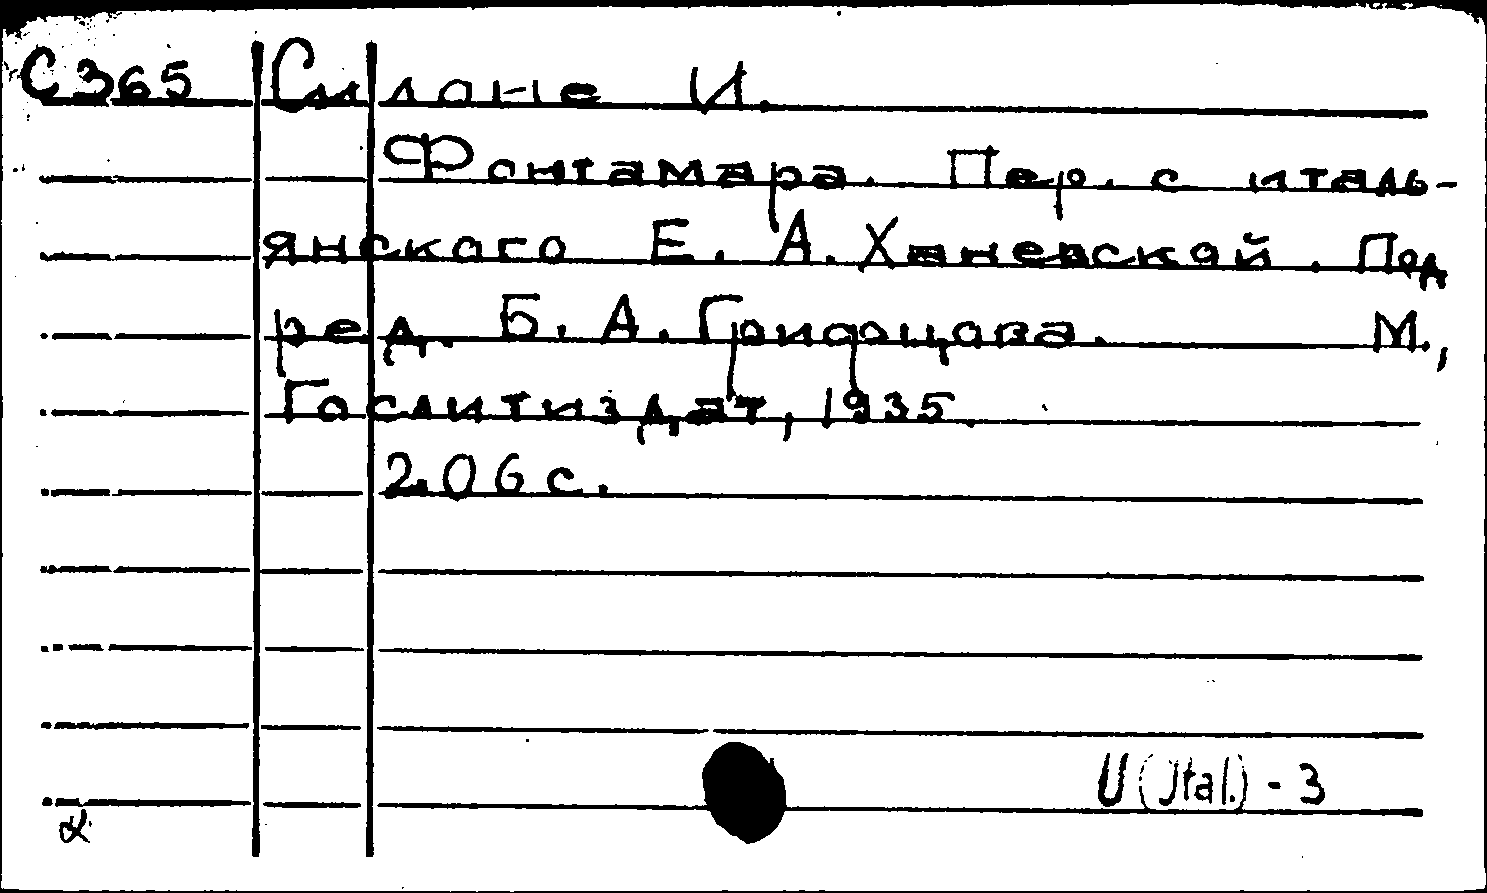 С365 Силоне И.
Фонтамара. Пер. с италь-
янского Е. А. Ханевской. Под
ред. Б. А. Грифцова. М.,
Гослитиздат, 1935.
206 с.
U (Jtal.) - 3
α